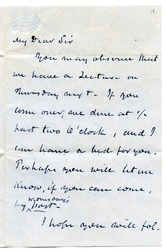 My Dear Sir
You may observe that
we have a Lecture on
Thursday next - If you
come over, we dine at ½
past two O'clock, and I
can have a bed for you.
Perhaps you will let me
know, if you can come,
by
I hope you will